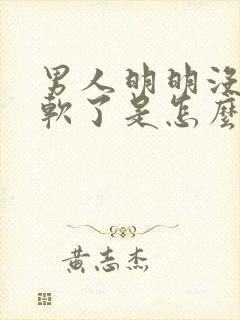 男人明明没
軟了是怎麼
黄志杰